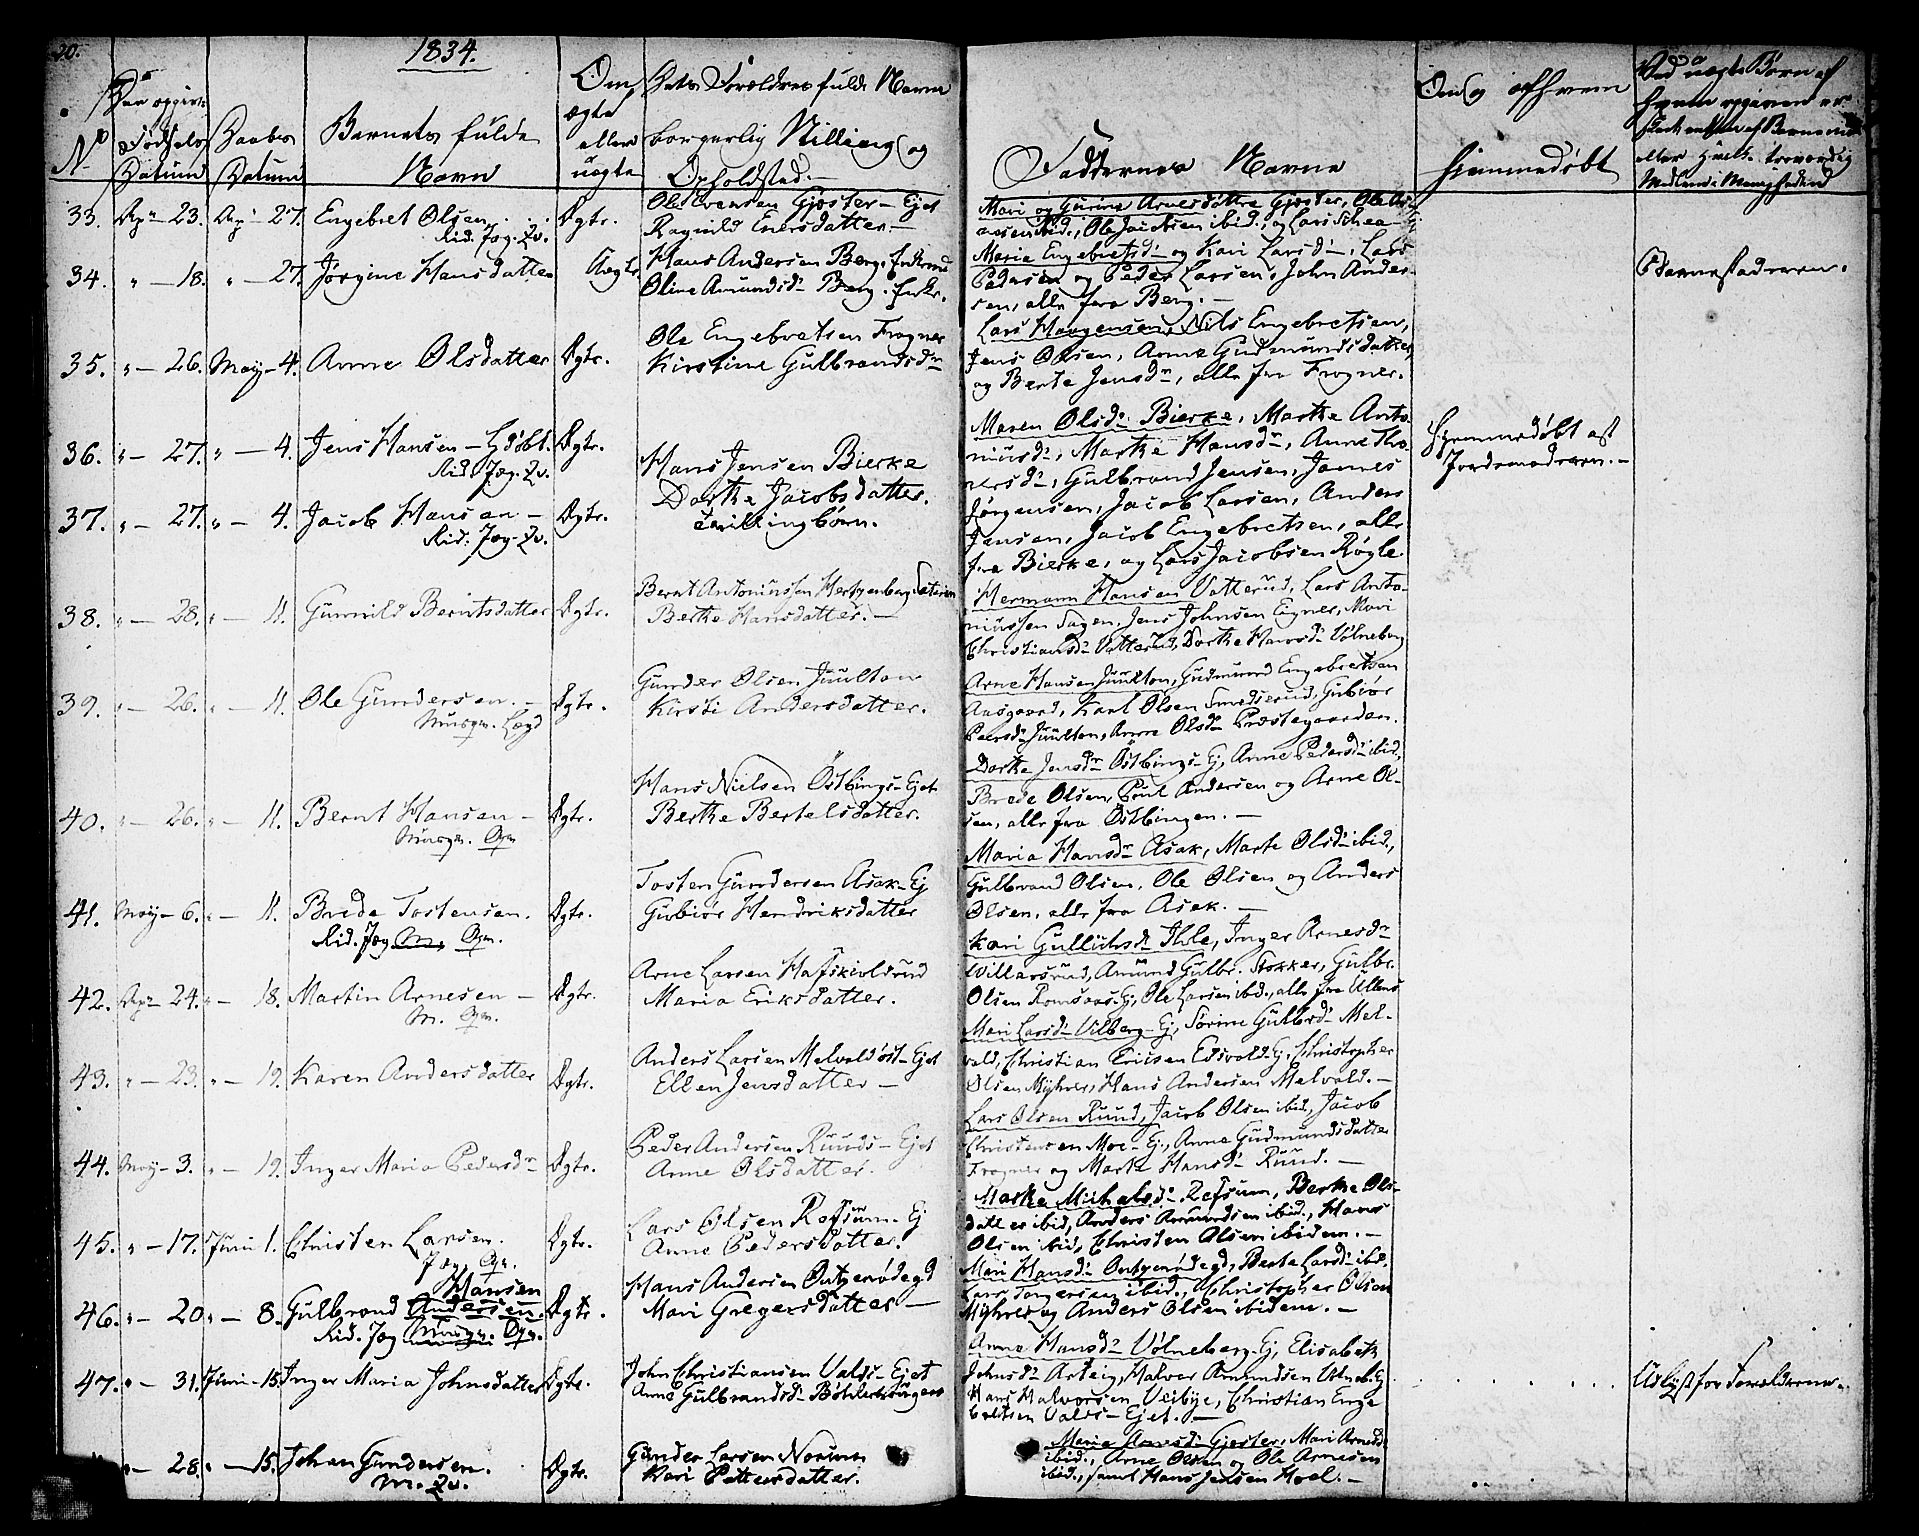 20.
1834.
No
Den opgivne Fødsels Datum
Daabs Datum
Barnets fulde Navn
Om ægte eller uægte
Dets Forældres fulde Navne borgerlig Stilling og Opholdsted.-
Faddernes Navne
Om og af hvem hjemmedøbt
33. Apr 23. Apr 27. Engebret Olsen. Ægte.
Rid. Jæg. Qv.
Ole Evensen Gjester - Ejet
Ragnild Enersdatter.-
Mari og Gurine Arnesdøttre Gjester, Ole
ibid., Ole Jacobsen ibid., og Lars
34. " - 18. " - 27. Jørgine Hansdatter Uægte.
Hans Andersen Berg.
Oline Amundsdr Berg.
Maria Engebretsdr og Kari Larsdr, Lars
Pedersen og Peder Larsen, John Ander-
sen, alle fra Berg.-
Barnefaderen.
35. " - 26. May - 4. Anne Olsdatter Ægte.
Ole Engebretsen Frogner
Kirstine Gulbrandsdr
Lars Haagensen, Nils Engebretsen,
Jens Olsen, Anne Gudmundsdatter,
og Berte Jensdr, alle fra Frogner.
36. " - 27. " - 4. Jens Hansen - Hdøbt. Ægte.
Rid. Jæg. Qv.
Hans Jensen Bierke
Dorthe Jacobsdatter.
Tvillingbørn.
Maren Olsdr Bierke, Marthe Anto-
niusdr, Marthe Hansdr, Anne Tho-
mersdr, Gulbrand Jensen, Johannes
Hjemmedøbt af
Jordemoderen.-
37. " - 27. " - 4. Jacob Hansen - Ægte.
Rid. Jæg. Qv.
Jørgensen, Jacob Larsen, Anders
Jensen, Jacob Engebretsen, alle
fra Bierke, og Lars Jacobsen Røgle
38. " - 28. " - 11. Gunnild Berntsdatter Ægte.
Bernt Antoniussen Hertzenberg
Berthe Hansdatter.-
Hermann Hansen Vatterud, Lars Anto-
niussen Hagen, Jens Johnsen Eigner, Mari
Christiansdr Vatterud, Dorthe Hansdr Vølneberg
39. " - 26. " - 11. Ole Gundersen. - Ægte.
Musqn. Lægd
Gunder Olsen Juulton
Kirsti Andersdatter.
Arne Hansen Juulton, Gudmund Engebretsen
Aasgaard, Karl Olsen Smedserud, Gubiør
Peersdr Juulton, Anne Olsdr Præstegaarden.
40. " - 26. " - 11. Bernt Hansen - Ægte.
Musqn.
Hans Nielsen Østbings - Ejet
Berthe Bertelsdatter.
Dorthe Jensdr Østbings - Ej, Anne Pedersdr ibid,
Brede Olsen, Poul Andersen og Arne Ol-
sen, alle fra Østbingen.-
41. May - 6. " - 11. Brede Tostensen. Ægte.
Rid. Jæg.
Tosten Gundersen Asak - Ej
Gubiør Hendriksdatter
Maria Hansdr Asak, Marte Olsdr ibid.,
Gulbrand Olsen, Ole Olsen og Anders
Olsen, alle fra Asak.-
42. Apr 24. " - 18. Martin Arnesen - Ægte.
Arne Larsen Hafskiolsrud
Maria Eriksdatter.
Kari Gulliksdr Ihle, Inger Arnesdr
Willersrud, Amund Gulbr. Stokker, Gulbr.
Olsen Romsaas-Ej, Ole Larsen ibid., alle fra Ullens
43. " - 23. " - 19. Karen Andersdatter Ægte.
Anders Larsen Melvold øst - Ejet
Ellen Jensdatter -
Mari Larsdr Vilberg - Ej, Sørine Gulbrdr Mel-
vold, Christian Ericsen Edsvold-Ej, Christopher
Olsen Myhrer, Hans Andersen Melvold.-
44. May - 3. " - 19. Inger Maria Pedersdr Ægte.
Peder Andersen Ruuds - Ejet
Anne Olsdatter.
Lars Olsen Ruud, Jacob Olsen ibid, Jacob
Christensen Moe - Ej, Anne Gudmundsdatter
Frogner og Marte Hansdr Ruud.-
45. " - 17. Juni 1. Christen Larsen. Ægte.
Jæg.
Lars Olsen Refsum - Ej
Anne Pedersdatter.
Marthe Michelsdr Refsum, Berthe Ols-
datter ibid, Anders Amundsen ibid., Hans
Olsen ibid, Christen Olsen ibidem.-
46. " - 20 " - 8. Gulbrand Andersen. Hansen Ægte.
Rid. Jæg Musqn.
Hans Andersen
Mari Gregersdatter -
Mari Hansdr, Berte Larsdr ibid,
Lars Torgersen ibid., Christopher Olsen
Myhrer og Anders Olsen ibidem.-
47. " - 31. Juni - 15. Inger Maria Johnsdatter Ægte.
John Christiansen Valds - Ejet
Anne Gulbrandsdr
Anne Hansdr Vølneberg - Ej, Elisabeth
Johnsdr Arteig, Halvor Amundsen
Hans Halvorsen Veibye, Christian Enge
bretsen Valds - Ejet.-
" - 28. " - 15. Johan Gundersen. Ægte.
M. Qv.
Gunder Larsen Norum
Kari Pettersdatter.
Maria Arnesdr Gjester, Mari Arnesdr
ibid., Arne Olsen og Ole Arnesen
ibid., samt Hans Jensen Hoel.-